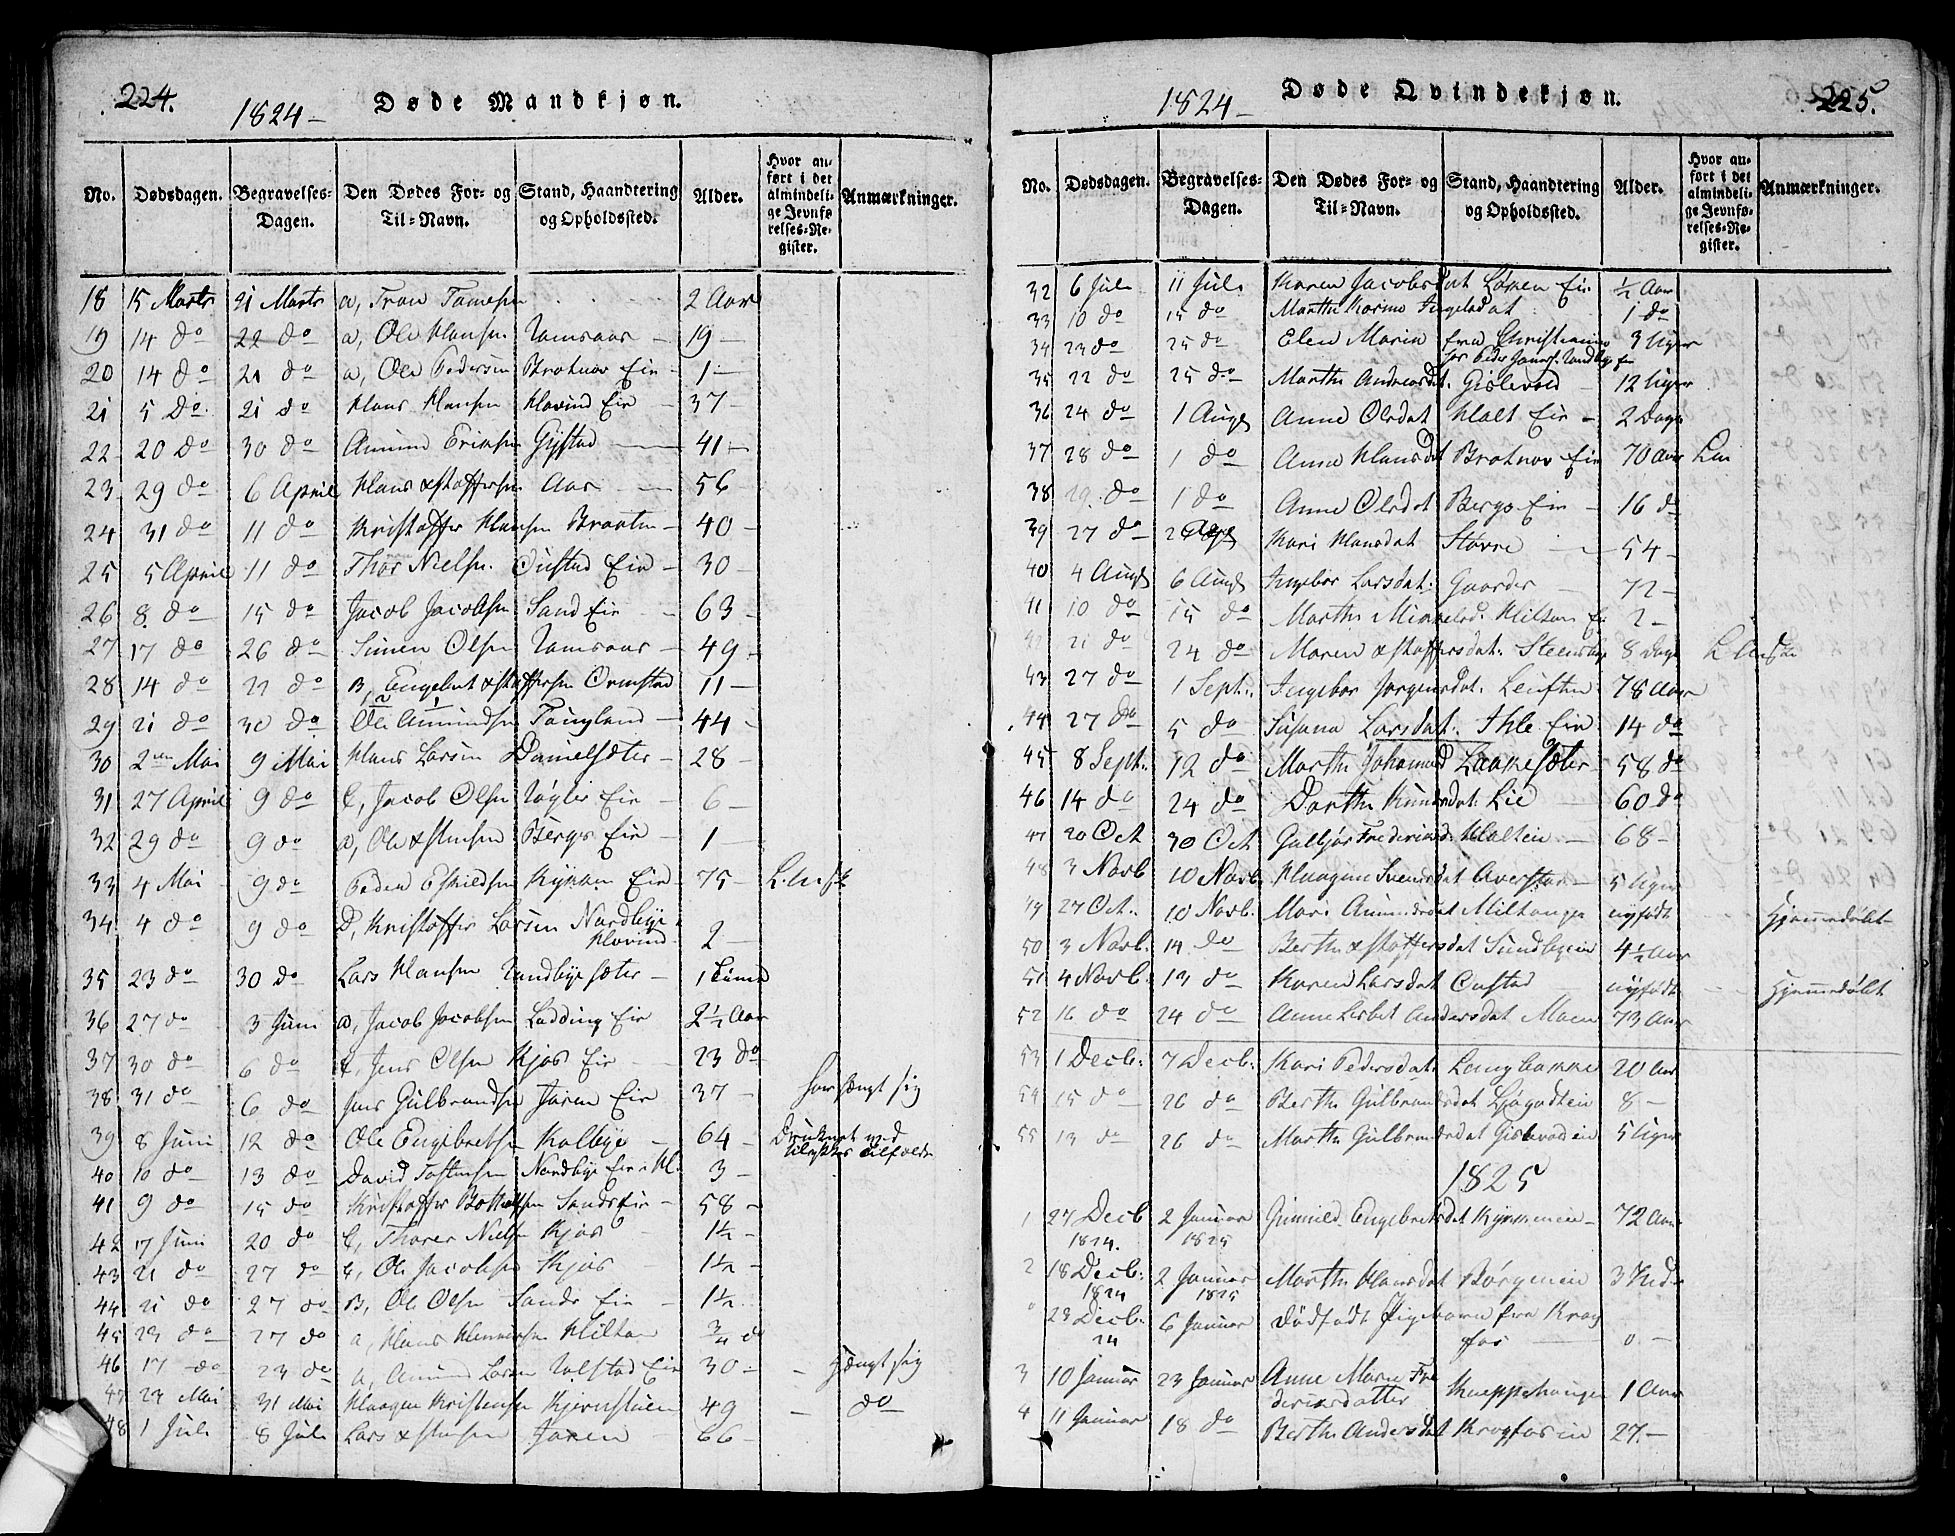 224.
1824 –
Døde Mandkjøn.
No. Dødsdagen. Begravelses-Dagen. Den Dødes For- og Til-Navn. Stand, Haandtering og Opholdssted. Alder. Hvor anført i det almindelige Jevnførelses-Register. Anmærkninger.
18 15 Marts 21 Marts a, 2 Aar
19 14 do 22 do a, Ole Hansen Ramsaas – 19 –
20 14 do 21 do a, Ole Pedersen Eie – 1 –
21 5 do 21 do Hans Hansen Hovind Eie – 37 –
22 20 do 30 do Amund Eriksen Gystad 41 –
23 29 do 6 April Hans xstoffersen Aas 56
24 31 do 11 do Kristoffer Hansen Braaten – 40 –
25 5 April 11 do Thor Nielsen Custad Eie – 30 –
26 8 do 15 do Jacob Jacobsen Sand Eie 63 –
27 17 do 26 do Simen Olsen Ramsaas – 49 –
28 14 do B, Engebret xstoffersen Ormstad 11 –
29 21 do 30 do Ole Amundsen Taugland – 44 –
30 2den Mai 9 Mai Hans Larsen Danielsæter – 28 –
31 27 April 9 do C, Jacob Olsen Eie – 6 –
32 29 do 9 do D, Ole xstensen Bergs Eie – 1 –
33 4 Mai 9 do Peder Eskildsen Eie – 75 – L. Ensk
34 4 do 9 do D, Kristoffer Larsen Nordbye Hovind 2 –
35 23 do 30 do Lars Hansen Randbye sæter – 1 Time
36 27 do 3 Juni D, Jacob Jacobsen Ladding Eie 2½ Aar
37 30 do 6 do C, Jens Olsen Kjos Eie 23 do
38 31 do 6 do Jens Gulbrandsen Jaren Eie 37 – har hængt sig
39 8 Juni 12 do Ole Engebretsen Kolbye – 64 – Druknet ved Ulykkes tilfælde
40 10 do 13 do David Tostensen Nordbye Eie i H. 3 –
41 9 do 15 do Kristoffer Sands Eie – 58 –
42 17 Juni 20 do C, Thorer Nielsen Kjos 1½ –
43 21 do 27 do C, Ole Jacobsen Kjos 1½ –
44 21 do 27 do B, Ole Olsen Sands Eie – 1½
45 23 do 27 do a, Hans Hilton ¾ do
46 17 do 23 do a, Amund Larsen Eie 30 – – hængt sig
47 23 Mai 31 Mai Haagen Kristensen Kjernstuen 49 – do
48 1 Juli 8 Juli Lars xstensen Jaren 66 –
1824 –
Døde Qvindekjøn.
225.
No. Dødsdagen. Begravelses-Dagen. Den Dødes For- og Til-Navn. Stand, Haandtering og Opholdssted. Alder. Hvor anført i det almindelige Jevnførelses-Register. Anmærkninger.
32 6 Juli 11 Juli Karen Jacobsdat Løken Eie ½ Aar
33 10 do 15 do Marthe Karine Ingelsdat 1 do
34 23 do 25 do Elen Maria fra Christiania 3 Uger
35 22 do 25 do Marthe Andreasdt. Gislevold – 12 Uger
36 24 do 1 Augst Anne Olsdat Holt Eie – 2 Dage
37 28 do 1 do Anne Hansdat Eie 70 Aar
38 29 do 1 do Anne Olsdat Bergs Eie – 16 do
39 27 do 2 Augst Kari Hansdat Støvre – 54 –
40 4 Augst 6 Augst Ingebor Larsdat. Gaarder 72 –
41 10 do 15 do Marthe Mikkelsd. Hilton Eie 2 –
42 21 do 24 do Maren xstoffersdat. Steensbye 8 Dage L. Ensk
43 27 do 1 Sept. Ingebor Jørgensdat. 78 Aar
44 27 do 5 do Susana Larsdat. Ihle Eie 14 do
45 8 Sept. 12 do Marthe Johannesd Laakesæter 58 do
46 14 do 24 do Dorthe Knudsdat. Lie 60 do
47 20 Oct 30 Oct Gulbjør Frederiksd. Holteie – 68 –
48 3 Novb 10 Novb Haagine Svensdat Aurstad – 5 Uger
49 27 Oct. 10 Novb. Mari Amundsdat Miltonge nyfødt Hjemmedøbt
50 3 Novb. 14 do Berthe xstoffersdat Sundbyeie 4½ Aar
51 4 Novb. 13 do Karen Larsdat Custad nyfødt Hjemmedøbt
52 16 do 24 do Anne Lisbet Andersdat Moen 73 Aar
53 1 Decb. 7 Decb. Kari Pedersdat. Langbakke 20 Aar
54 15 do 26 do Berthe Gulbrandsdat Ljøgodteie 8 –
55 13 do 26 do Marthe Gulbrandsdat Gislevoldeie 5 Uger
1825
1 27 Decb 1824. 2 Januar 1825 Gunnild Engebretsdat Kyrkeneie – 72 Aar
2 18 Decb. 1824 2 Januar 1825 Marthe Hansdat Børgeneie
0 23 Decb. 24 6 Januar Dødfødt Pigebarn fra Krogfos 0 –
3 10 Januar 23 Januar Anne Marie Frederiksdatter 1 Aar
4 11 Januar 18 do Berthe Andersdat Krogfoseie 27 –